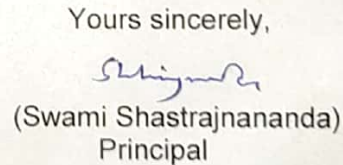 Yours sincerely,
(Swami Shastrajnananda)
Principal